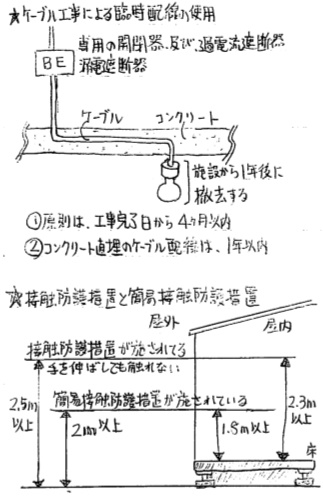 ☆ケーブル工事による臨時配線の使用
専用の開閉器及び、過電流遮断器
漏電遮断器
BE
ケーブル
コンクリート
施設から1年後に
撤去する
①原則は、工事完了日から4ヶ月以内
②コンクリート直埋のケーブル配線は、1年以内
☆接触防護措置と簡易接触防護措置
屋外
屋内
接触防護措置が施されてる
手を伸ばしても触れない
簡易接触防護措置が施されている
2.5m
以上
2m以上
1.8m以上
2.3m
以上
床